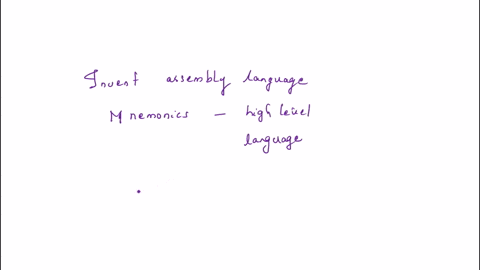 Invent assembly language
Mnemonics – high level
language